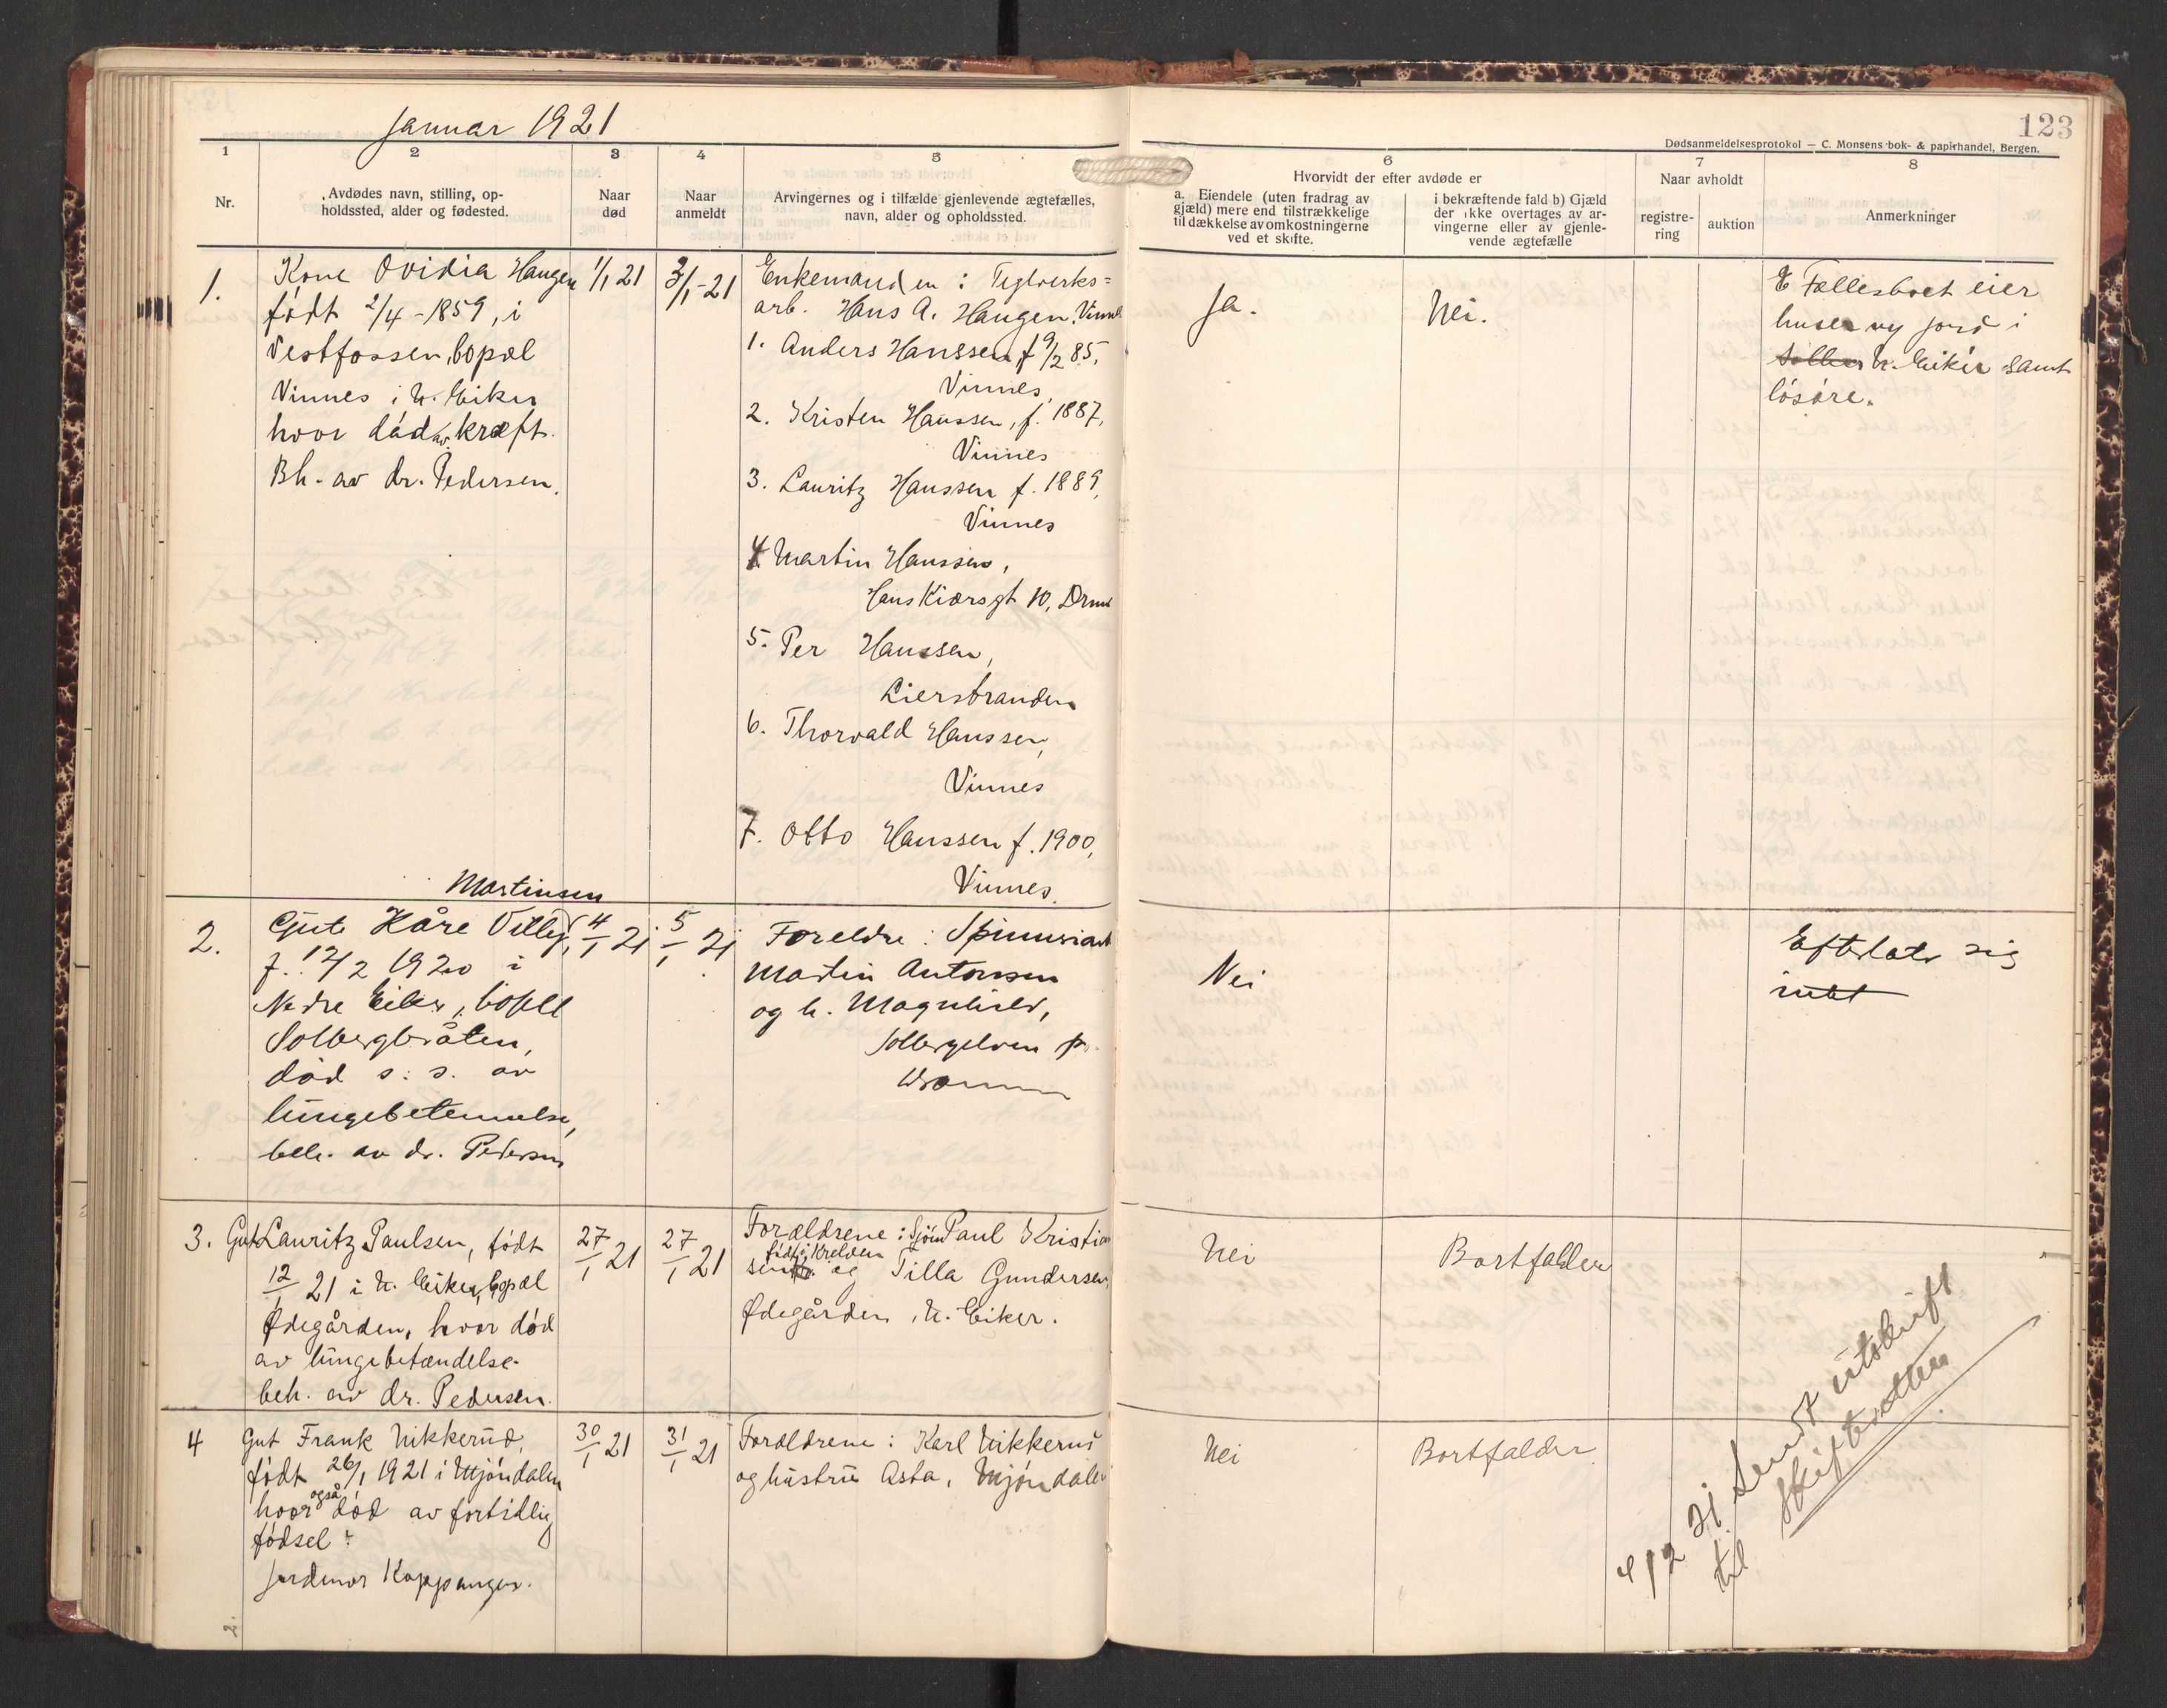 Januar 1921
123
Dødsanmeldelsesprotokol — C. Monsens bok- & papirhandel, Bergen.
1
2
3
4
5
6
7
8
Nr.
Avdødes navn, stilling, op-
holdssted, alder og fødested.
Naar
død
Naar
anmeldt
Arvingernes og i tilfælde gjenlevende ægtefælles,
navn, alder og opholdssted.
Hvorvidt der efter avdøde er
a. Eiendele (uten fradrag av
gjæld) mere end tilstrækkelige
til dækkelse av omkostningerne
ved et skifte.
i bekræftende fald b) Gjæld
der ikke overtages av ar-
vingerne eller av gjenle-
vende ægtefælle
Naar avholdt
registre-
ring
auktion
Anmerkninger
1.
Kone Ovidia Haugen
født 2/4 - 1859, i
Vestfossen, bopæl
Vinnes i N. Eiker
hvor død av kræft.
Bh. av dr. Pedersen.
1/1 21
3/1 - 21
Enkemanden: Teglverks=
arb. Hans A. Haugen, Vinnes
1. Anders Hanssen f 9/2 85,
Vinnes,
2. Kristen Hanssen, f. 1887,
Vinnes
3. Lauritz Hanssen f. 1889,
Vinnes
4. Martin Hanssen,
Hans Kiærsgt 10, Drm
5. Per Hanssen,
Lierstranden
6. Thorvald Hanssen,
Vinnes
7. Otto Hanssen f. 1900,
Vinnes.
Ja.
Nei.
Fællesboet eier
huse og jord i
N. Eiker samt
løsøre.
2.
Martinsen
Gut Kåre Villy,
f. 12/2 1920 i
Nedre Eiker, bopæl
Solbergbråten,
død s. s. av
lungebetennelse,
beh. av dr. Pedersen
4/1 21
5/1 21
Foreldre: Spinneriarb
Martin Antonsen
og h. Magnhild,
Solbergelven pr.
Drammen
Nei
Efterlater sig
intet
3.
Gut Lauritz Paulsen, født
12/1 21 i N. Eiker, bopæl
Ødegården, hvor død
av lungebetændelse.
beh. av dr. Pedersen.
27/1 21
27/1 21
Forældrene: Sjöm Paul Kristian
født i
sen og Tilla Gundersen,
Ødegården, N. Eiker.
Nei
Bortfalder
4
Gut Frank Nikkerud,
født 26/1 1921 i Mjøndalen
hvor også død av fortidlig
fødsel:
Jordmor Koppanger.
30/1 21
31/1 21
Forældrene: Karl Nikkerud
og hustru Asta, Mjøndalen
Nei
Bortfalder
4/2 21 Sendt utskrift
til Skifteretten